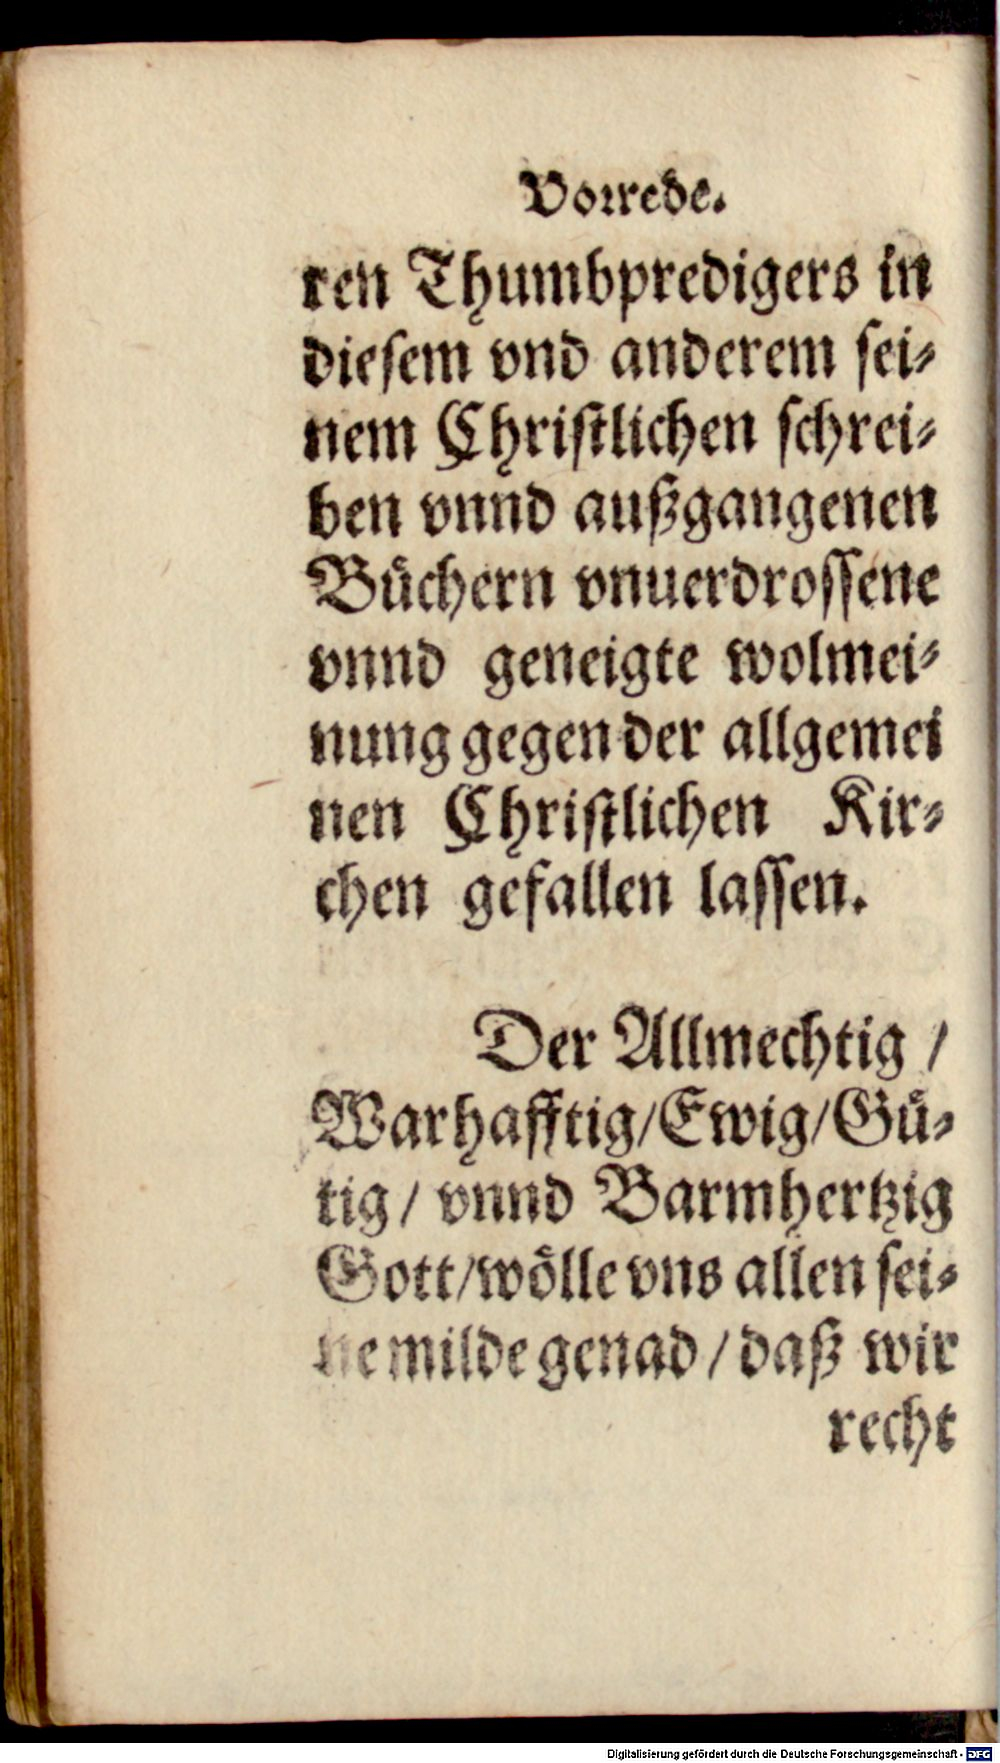 Vorrede.
ren Thumbpredigers in
diesem vnd anderem sei⸗
nem Christlichen schrei⸗
ben vnnd außgangenen
Bůchern vnuerdrossene
vnnd geneigte wolmei⸗
nung gegen der allgemei
nen Christlichen Kir⸗
chen gefallen lassen.
Der Allmechtig /
Warhafftig/Ewig/Gů⸗
tig / vnnd Barmhertzig
Gott/wölle vns allen sei⸗
ne milde genad / daß wir
recht
Digitalisierung gefördert durch die Deutsche Forschungsgemeinschaft - DFG